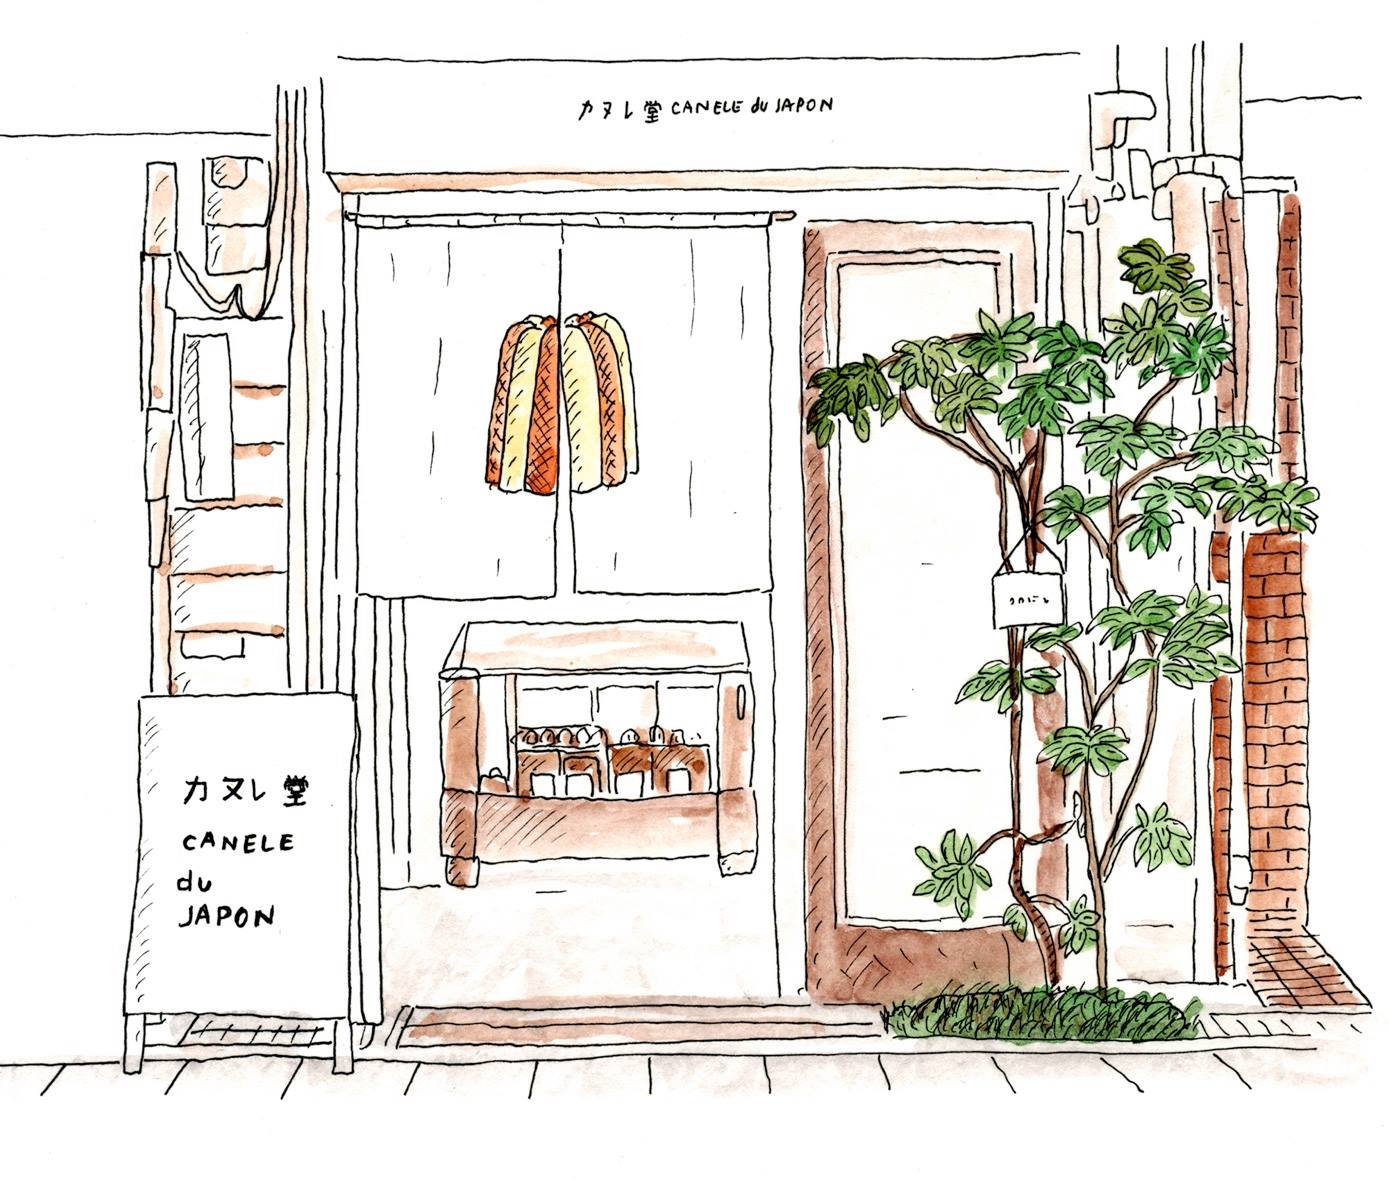 カヌレ堂 CANELE du JAPON
カヌレ堂
CANELE
du
JAPON